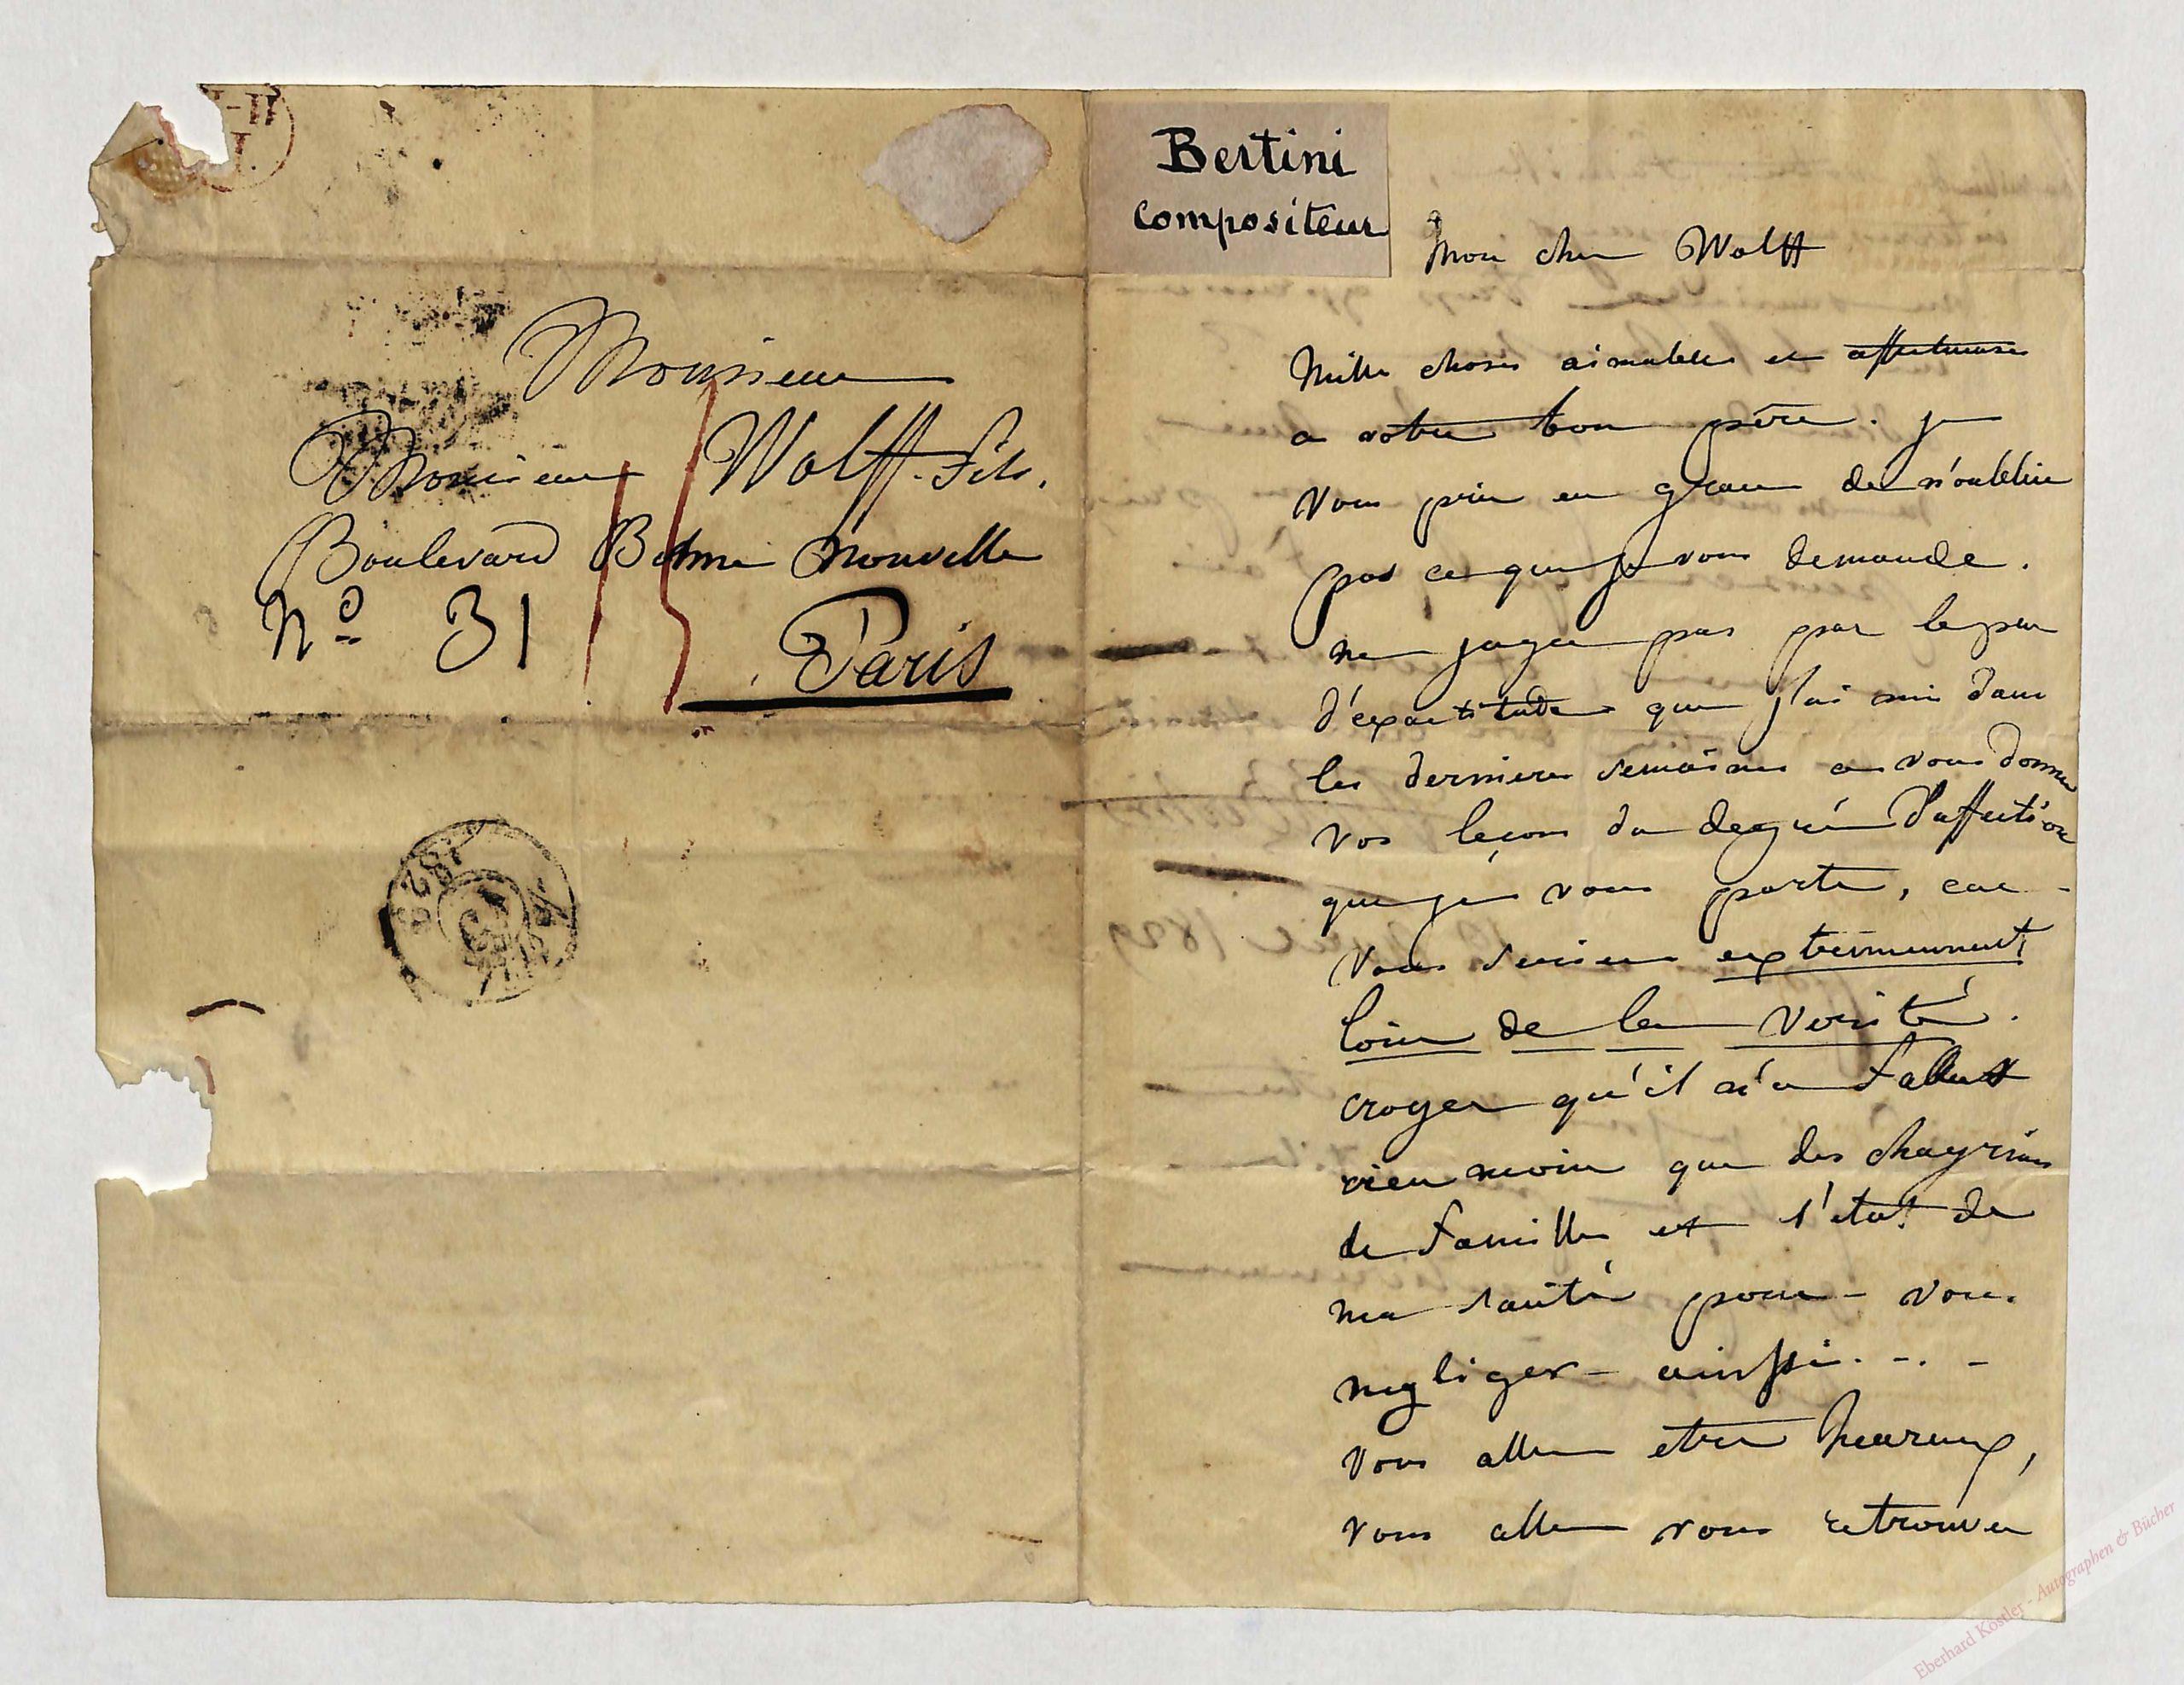 Monsieur
Monsieur Wolff fils.
Boulevard Bonne Nouvelle
N° 31
Paris
1829
Bertini
compositeur
Mon cher Wolff
Mille choses aimables et affectueuses
a votre bon père. je
vous prie en grace de n'oublier
pas ce que je vous demande.
ne jugez pas par le peu
d'expactitude que j'ai mis dans
les dernieres semaines a vous donner
vos leçons du degré d'affection
que je vous porte, car
vous seriez extremement
loin de la verité.
croyez qu'il n'a fallut
rien moin que des chagrins
de famille et l'etat de
ma santé pour vous
negliger ainssi....
vous allez etre heureux,
vous allez vous retrouver
Eberhard Köstler - Autographen & Bücher